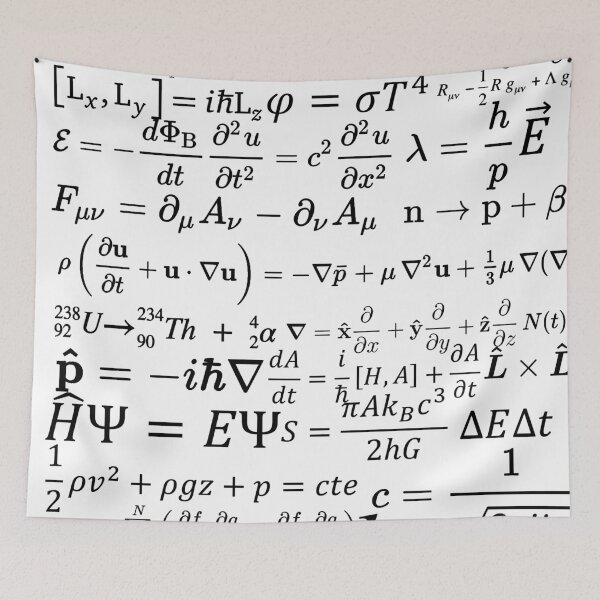 [Lₓ, L_y] = iħL_z φ = σT⁴ R_μν − 1/2 R g_μν + Λ g
ℰ = − dΦ_B/dt ∂²u/∂t² = c² ∂²u/∂x² λ = h/p E⃗
F_μν = ∂_μ A_ν − ∂_ν A_μ n → p + β
ρ(∂u/∂t + u · ∇u) = −∇p̄ + μ ∇²u + 1/3 μ ∇(∇
²³⁸₉₂U → ²³⁴₉₀Th + ⁴₂α ∇ = x̂ ∂/∂x + ŷ ∂/∂y + ẑ ∂/∂z N(t)
p̂ = −iħ∇ dA/dt = i/ħ [H, A] + ∂A/∂t L̂ × L̂
ĤΨ = EΨ S = πAk_Bc³/2hG ΔEΔt
1/2 ρv² + ρgz + p = cte c = 1/√
N